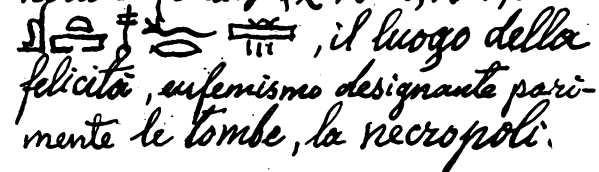 , il luogo della
felicità, eufemismo designante pari-
mente le tombe, la necropoli.